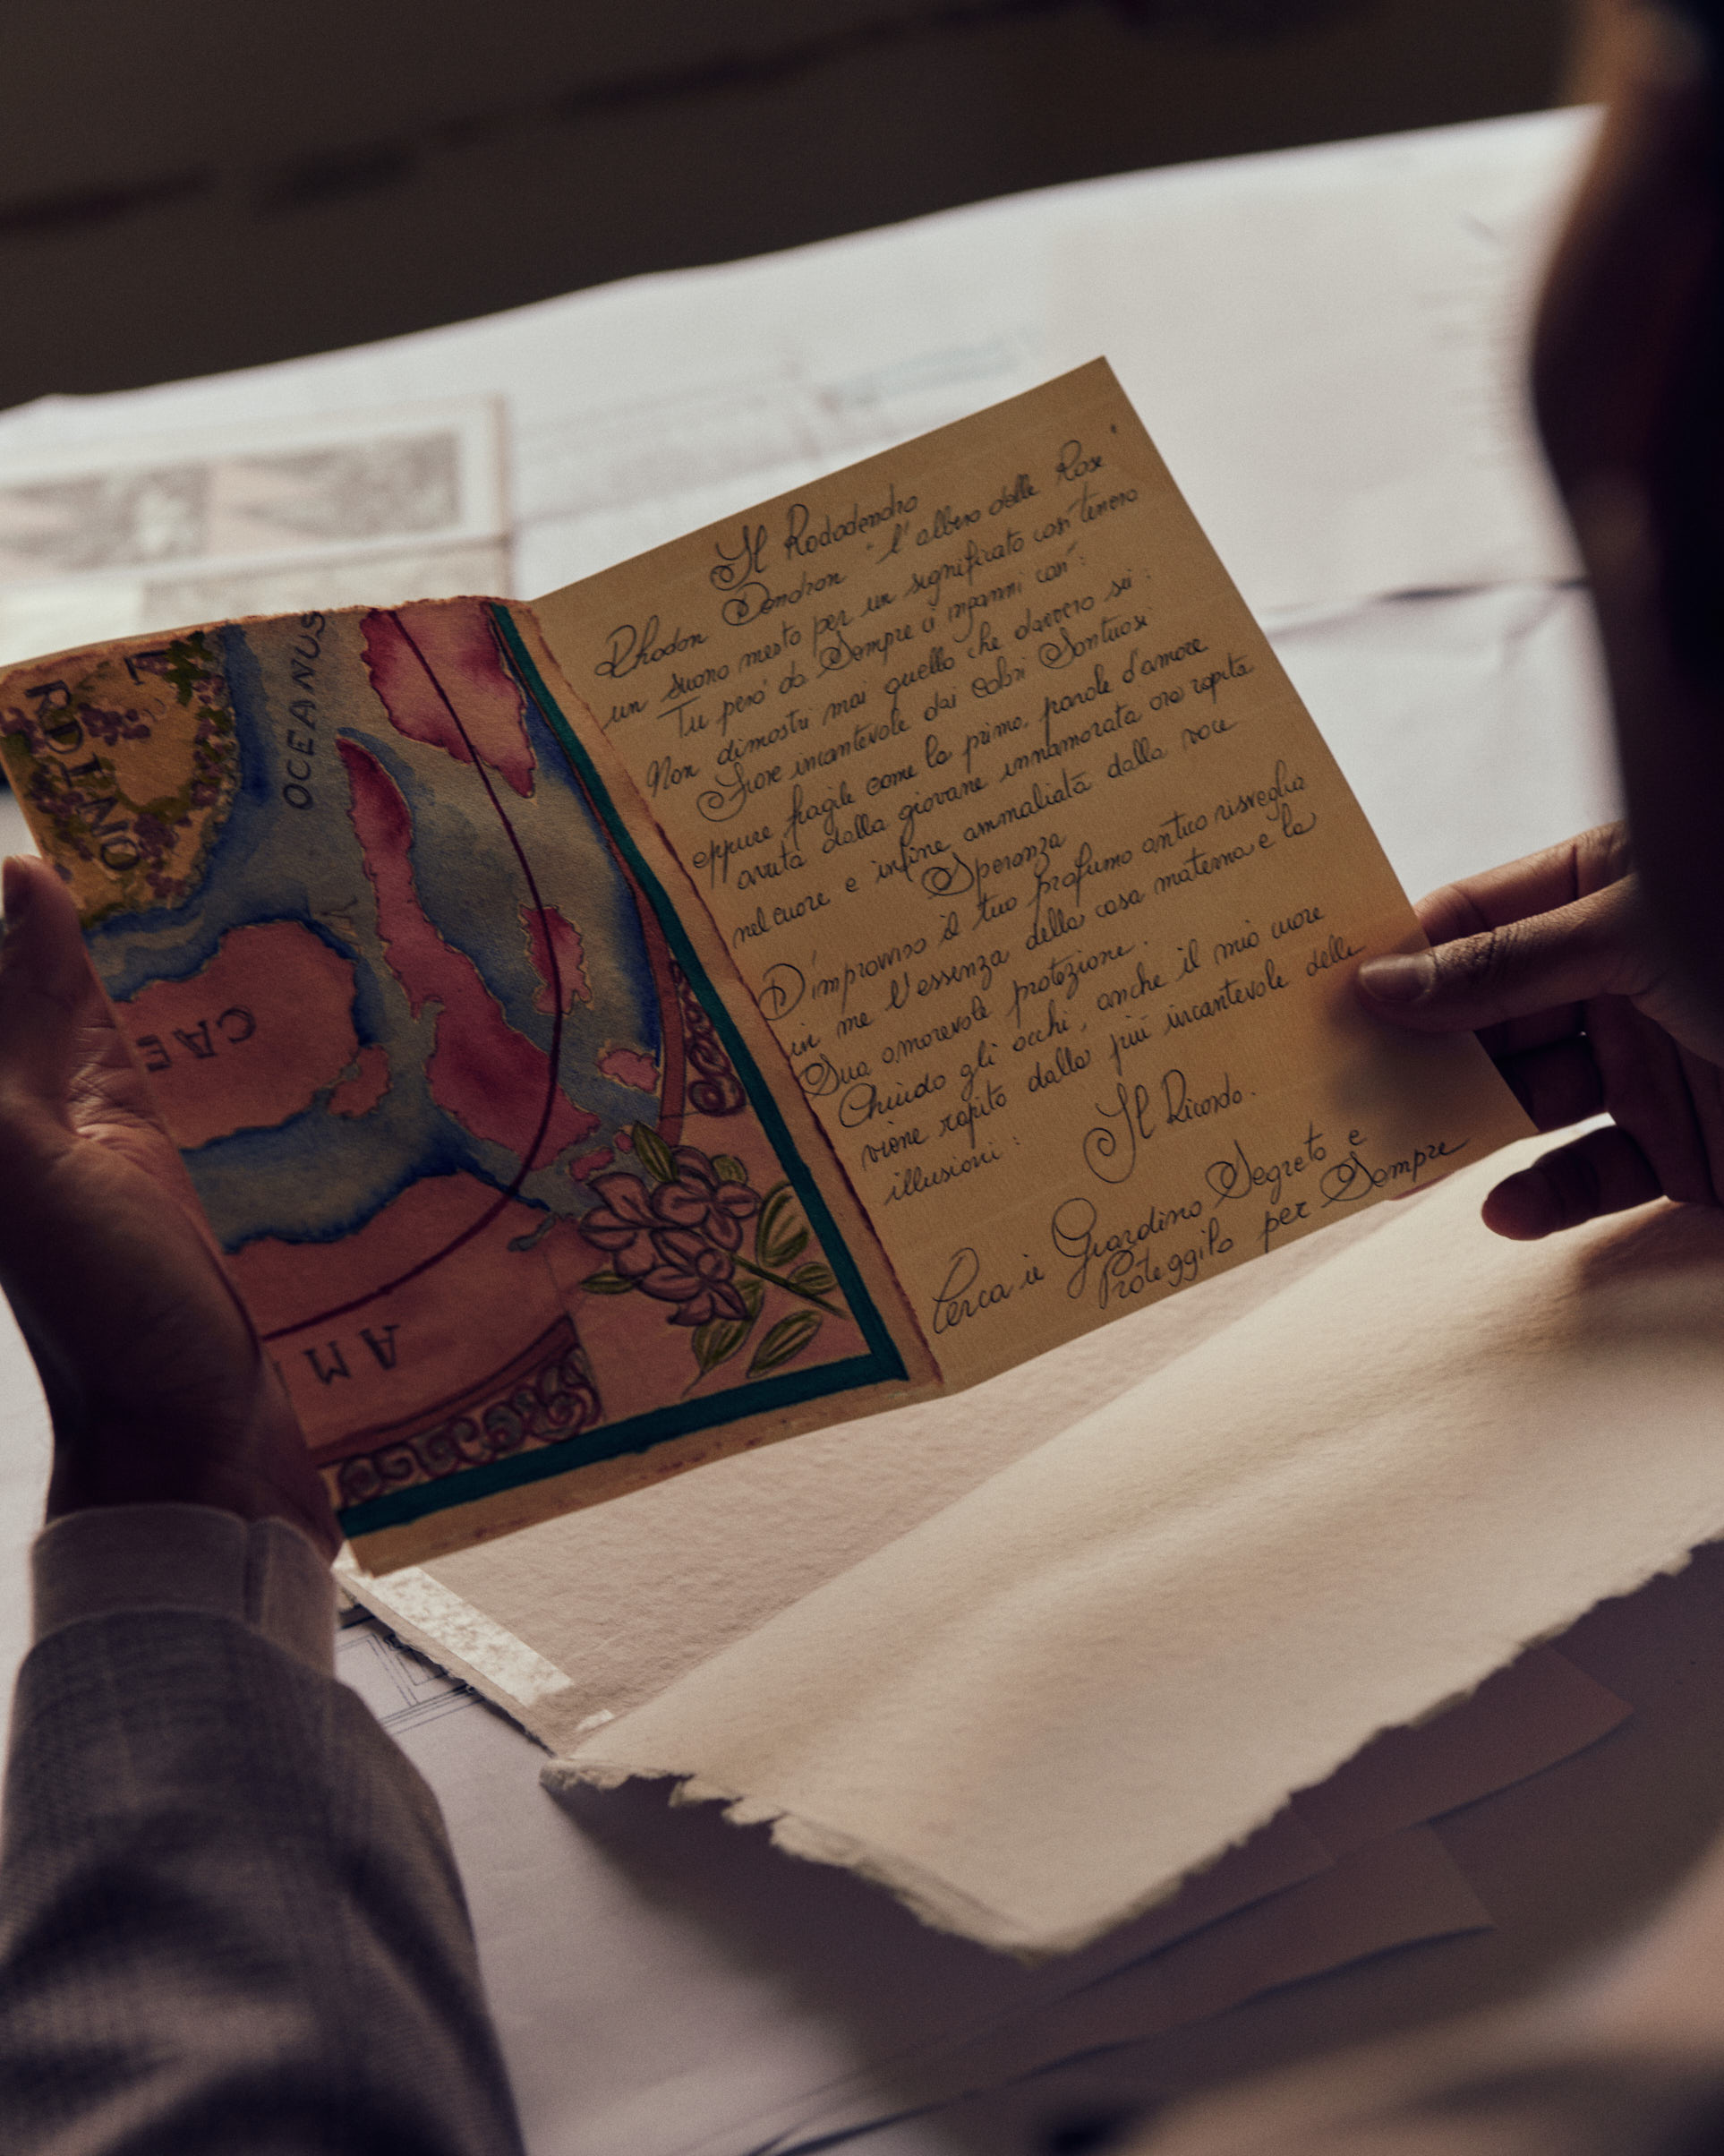 Il Rododendro
Rhodon Dendron "l'albero delle Rose"
un suono mesto per un significato così tenero
Tu però da Sempre ci inganni così:
Non dimostri mai quello che davvero sei:
Fiore incantevole dai colori Sontuosi
eppure fragile come la prima, parole d'amore
avuta dalla giovane innamorata ora rapita
nel cuore e infine ammaliata dalla voce
Speranza
D'improvviso il tuo profumo antico risveglia
in me l'essenza della casa materna e la
Sua amorevole protezione.
Chiudo gli occhi, anche il mio cuore
viene rapito dalla più incantevole delle
illusioni:
Il Ricordo.
Cerca il Giardino Segreto e
Proteggilo per Sempre
OCEANUS
RDINO
CAE
AM